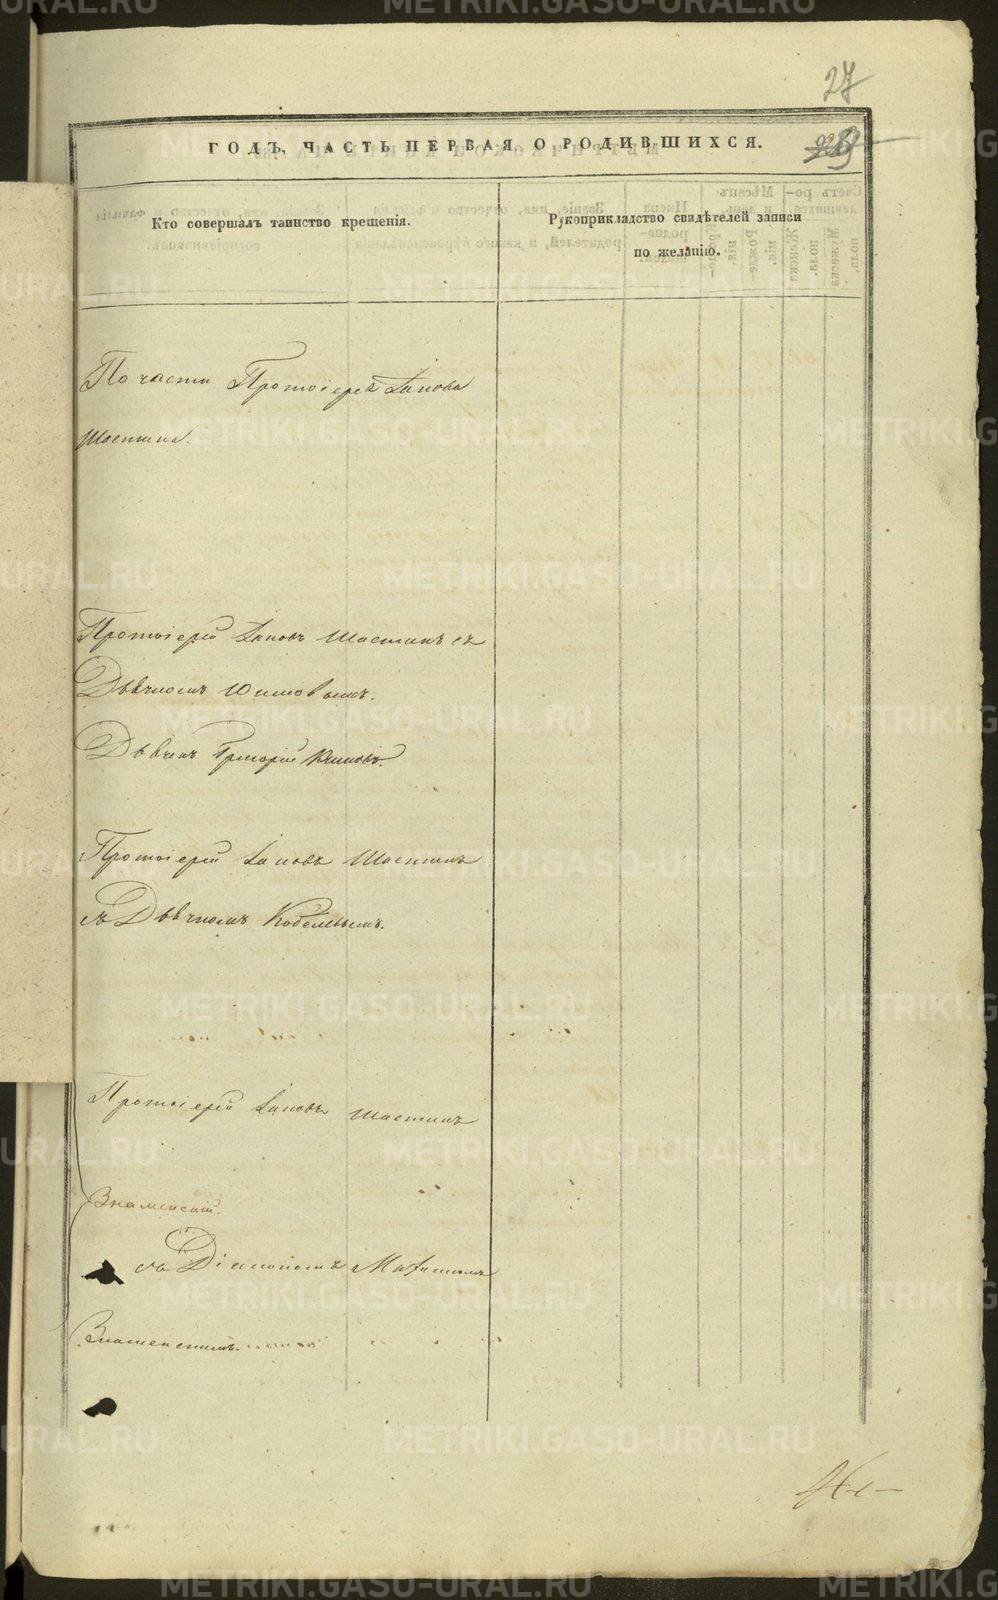 27
ГОДЪ, ЧАСТЬ ПЕРВАЯ О РОДИВШИХСЯ.
Кто совершалъ таинство крещенія.
Рукоприкладство свидѣтелей записи
по желанію.
По части Протоіерея Іакова
Шастина.
Протоіерей Іаковъ Шастинъ съ
Дьячкомъ
Дьячекъ Григорій
Протоіерей Іаковъ Шастинъ
съ Дьячкомъ Кобелевымъ.
Протоіерей Іаковъ Шастинъ
Знаменскій.
съ Діакономъ
Знаменскимъ.
METRIKI.GASO-URAL.RU